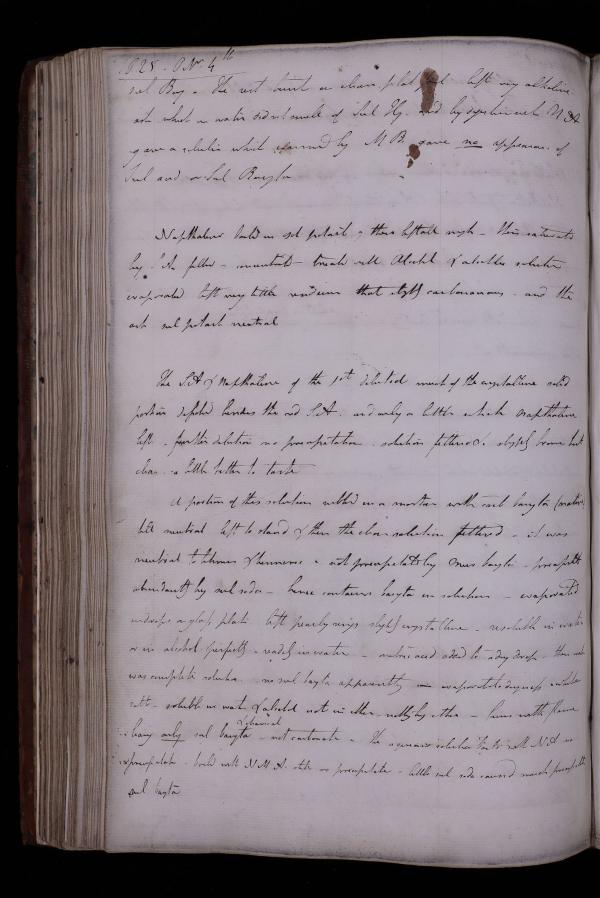 1825. Nov 4th
sul Bary. The rest burnt on clean plat foil left very alkaline
ash which in water did not smell of Sul Hy. and by
gave a solution which examined by M B. gave no appearance of
Sul acid or Sul Baryta
Napthaline boiled in sol potash, then left all night - then saturated
by S A filter - neutral - treated with Alcohol & alcoholic solution
evaporated left very little residuum that slightly carbonaceous - and the
ash sul potash neutral
The S.A & Napthaline of the 1st diluted much of the crystalline solid
portion deposited besides the red S.A. and only a little napthaline
left. further dilution no precipitation. solution filtered. slightly brown but
clear. a little bitter to taste
A portion of this solution rubbed in a mortar with carb baryta (native)
till neutral left to stand & then the clear solution filtered - it was
neutral to litmus & turmeric - not precipitated by Mur baryta - precipitated
abundantly by sul soda - hence contains baryta in solution - evaporated
in drops on glass plate left pearly rings slightly crystalline - resoluble in water
or in alcohol perfectly - readily in water - nitric acid added to a dry drop - then water
was complete solution no sul baryta apparently - evaporated to dryness a white
salt - soluble in water & alcohol not in ether - burns with flame
being only sul baryta & charcoal - not carbonate. The aqueous solution with N A no
precipitate - boiled with N M A. still no precipitate - little sul soda caused much precipitate
sul baryta